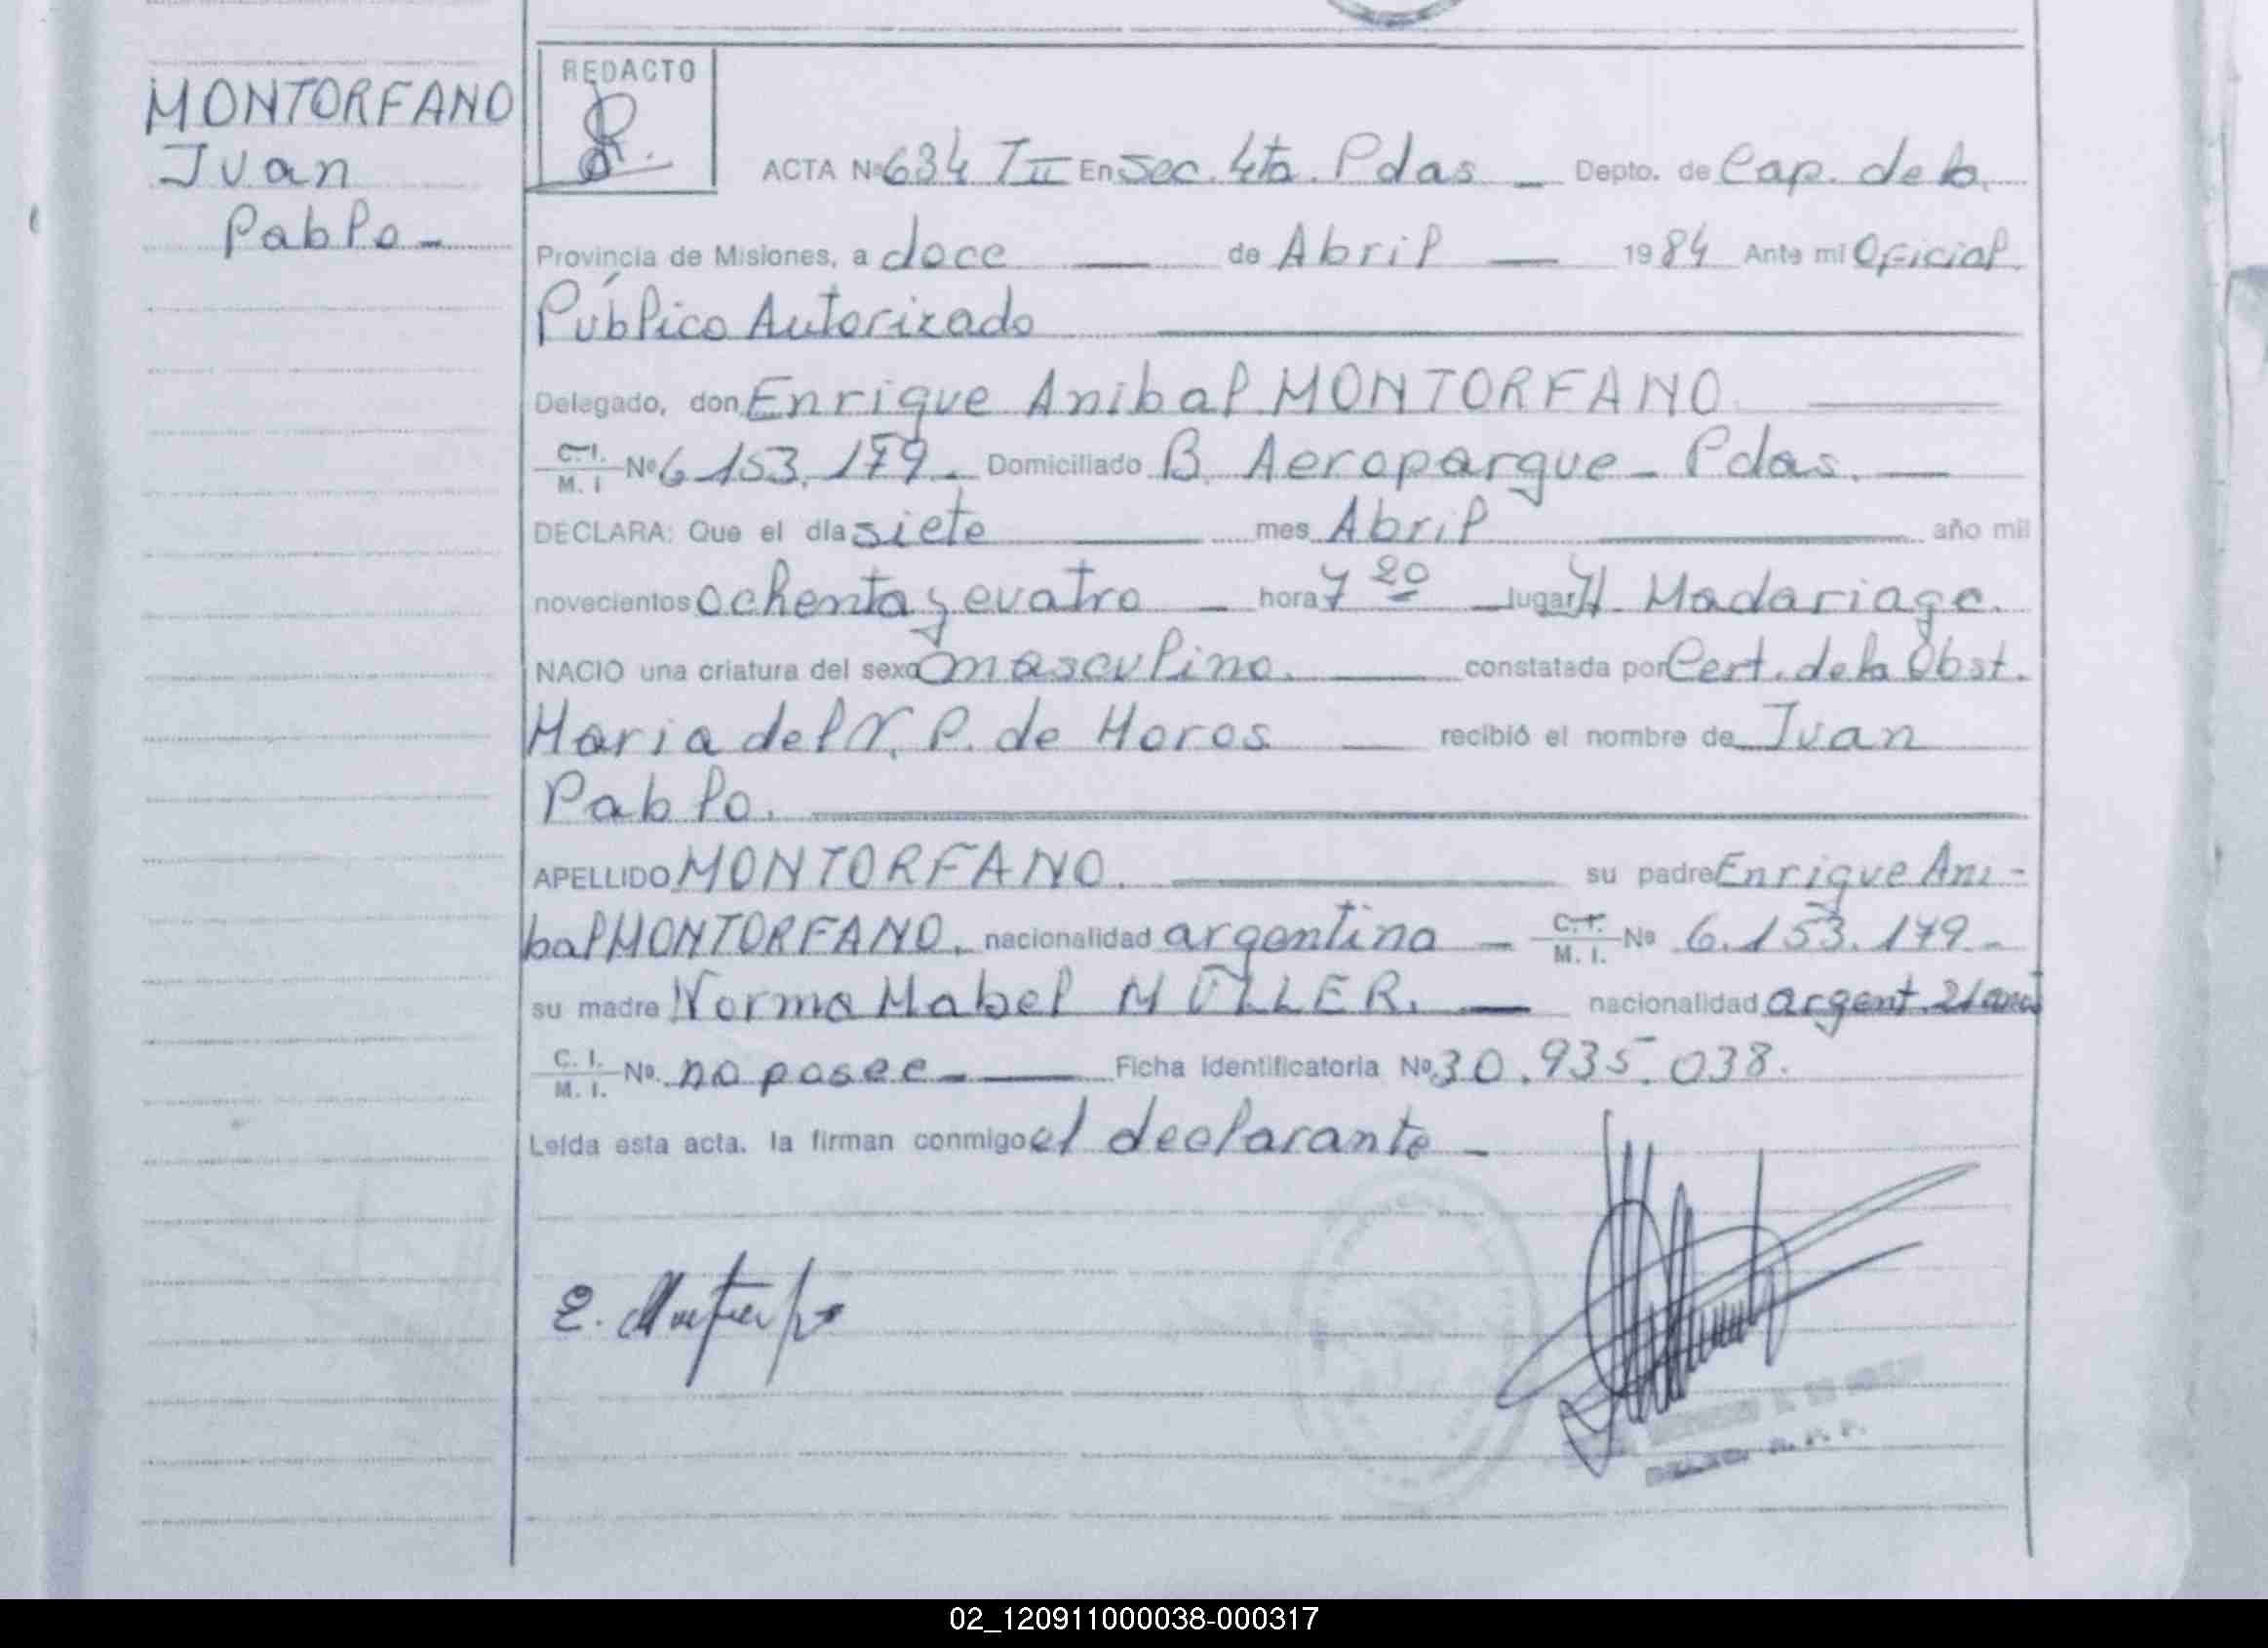 MONTORFANO
Juan
Pablo -
REDACTO
ACTA Nº 634 T II En Sec. 4ta. Pdas - Depto. de Cap. de la
Provincia de Misiones, a doce de Abril 1984 Ante mi Oficial
Público Autorizado
Delegado, don Enrique Anibal MONTORFANO
C.I. M.I Nº 6.153.179. Domiciliado B. Aeroparque - Pdas.
DECLARA: Que el día siete mes Abril año mil
novecientos ochenta y cuatro - hora 7 20 lugar H. Madariaga.
NACIO una criatura del sexo masculino. constatada por Cert. de la Obst.
Maria del N. P. de Moros recibió el nombre de Juan
Pablo.
APELLIDO MONTORFANO. su padre Enrique Ani-
bal MONTORFANO. nacionalidad argentina - C.I. M.I. Nº 6.153.179 -
su madre Norma Mabel MÜLLER. nacionalidad argent. 21 anos
C.I. M.I. Nº. no posee - Ficha Identificatoria Nº 30.935.038.
Leída esta acta. la firman conmigo el declarante -
02_120911000038-000317